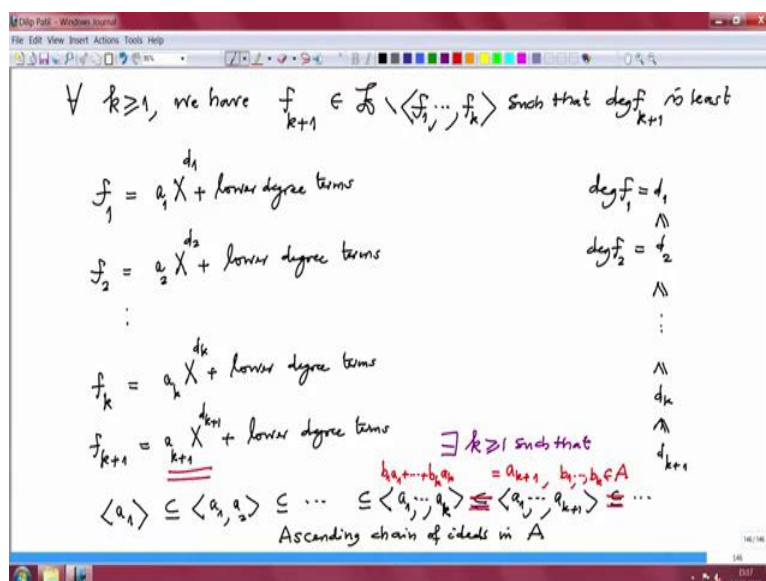 Dilip Patil - Windows Journal
File Edit View Insert Actions Tools Help
∀ k≥1, we have f_{k+1} ∈ 𝔄 \ ⟨f_1, ..., f_k⟩ such that deg f_{k+1} is least
f_1 = a_1 X^{d_1} + lower degree terms deg f_1 = d_1
≤
f_2 = a_2 X^{d_2} + lower degree terms deg f_2 = d_2
≤
⋮ ⋮
≤
f_k = a_k X^{d_k} + lower degree terms d_k
≤
f_{k+1} = a_{k+1} X^{d_{k+1}} + lower degree terms ∃ k≥1 such that d_{k+1}
b_1 a_1 + ... + b_k a_k = a_{k+1}, b_1, ..., b_k ∈ A
⟨a_1⟩ ⊆ ⟨a_1, a_2⟩ ⊆ ... ⊆ ⟨a_1, ..., a_k⟩ ⊆ ⟨a_1, ..., a_{k+1}⟩ ⊆ ...
Ascending chain of ideals in A
146/146
146
15:17